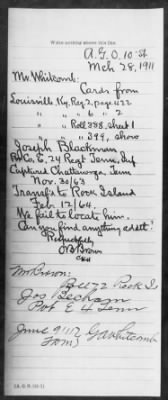 Write nothing above this line
A.G.O. 10-St
Mch 28, 1911
Mr. Whitcomb:
Cards from
Louisville Ky. Reg 2, page 422
" " " 6 " 2
" " Roll 388, sheet 1
" " " 299, show
Joseph Blackman
Pvt Co. E. 24 Regt Tenn. Inf
Captured Chattanooga, Tenn
Nov. 30/63
Transf. to Rock Island
Feb 12/64.
We fail to locate him.
Can you find anything addl.?
Respectfully
Brown
Mr Brown:
Rock Is
Jos Beckham
Pvt E 4 Tenn
June 9 1112 GaWhitcomb
(A. G. O. 131-1)